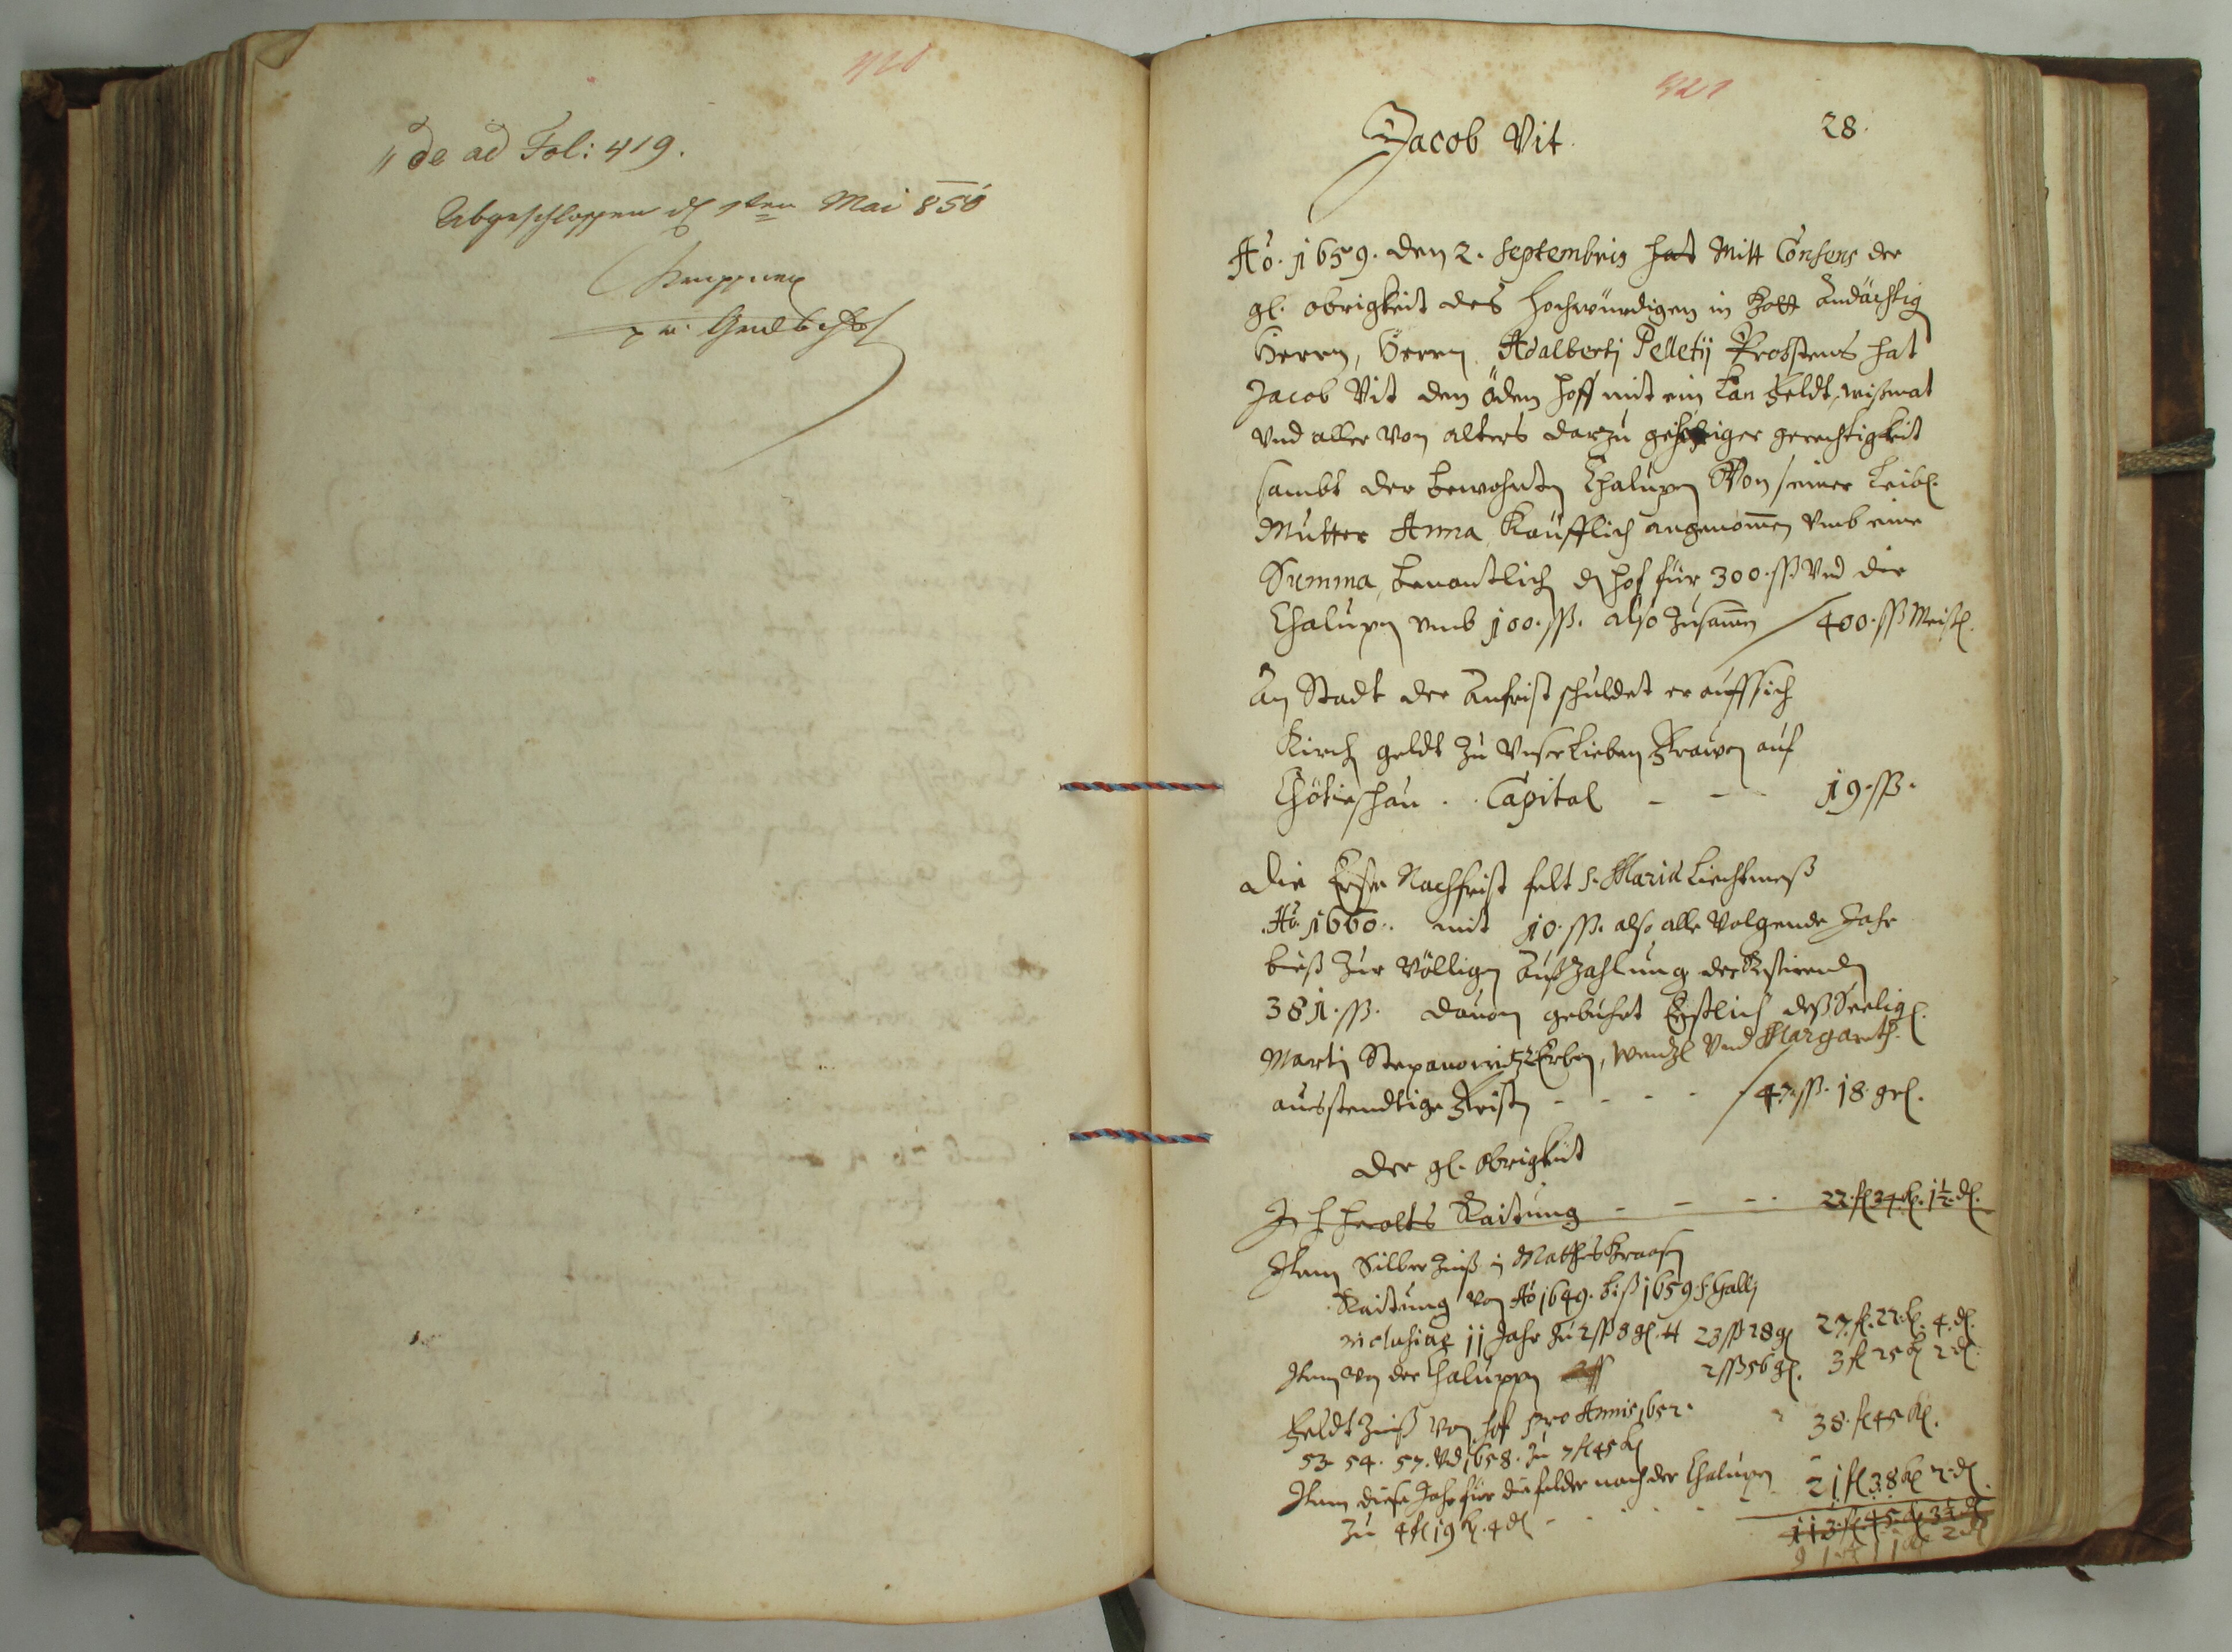 420
de ad Fol: 419.
Abgeschlossen d 1ten Mai 850
421
28.
Jacob Vit.
Aõ. 1659. den 2. Septembris hat Mitt Consens der
gl. obrigkeit des hochwürdigen in Gott Andächtig
Herrn, Herrn Adalberti Pelletij Probstens hat
Jacob Vit den öden hoff mit ein Lan Feldt, wißmat
vnd aller von alters darzu gehöriger gerechtigkeit
sambt der bewohnten Chalupen Von seiner Leibl.
Mutter Anna Kaüfflich angenommen vmb eine
Summa, benantlich d hof für 300. ß Vnd die
Chalupen vmb 100. ß. also Zusamen / 400. ß Meisl.
An Stadt der Anfrist schuldet er auff sich
Kirchen geldt zu Vnser Lieben Frawen auf
Chötieschau. Capital - - - 19. ß.
Die Erste Nachfrist felt S. Maria Liechtmeß
Aõ. 1660. mit 10. ß. also alle Volgende Jahr
bieß zur Völligen Außzahlung der Restirenden
381. ß. dauon gebührt Erstlich deß Seelig.
Martin Stepanowitz Erben, Wenzl Vnd Margareth.
ausstendtige Fristen - - - - / 47. ß. 18. grl.
Der gl. Obrigkeit
Raitung - - - 22. fl 34. k. 1½. dl.
Item Silber Zinß in Matthes
Raitung von Aõ 1649. biß 1659 S. Galli
inclusive 11 Jahr zu 2 ß 8 gl. tt 23 ß 28 gl 27. fl. 22. k. 4. dl.
Item von der Chaluppen 2 ß 56 gl. 3 fl 25 k 2 dl.
Feldt Zinß von hof pro Annis 1652.
53 54. 57. Vnd 1658. zu 7 fl 45 k 38. fl 45 k.
Item diese Jahr für die felder nach der Chalupen
zu 4 fl 19 k. 4 dl - - - 21 fl 38 k 2 dl.
113. fl 45. k 3½ dl
91 fl 11 k 2 dl